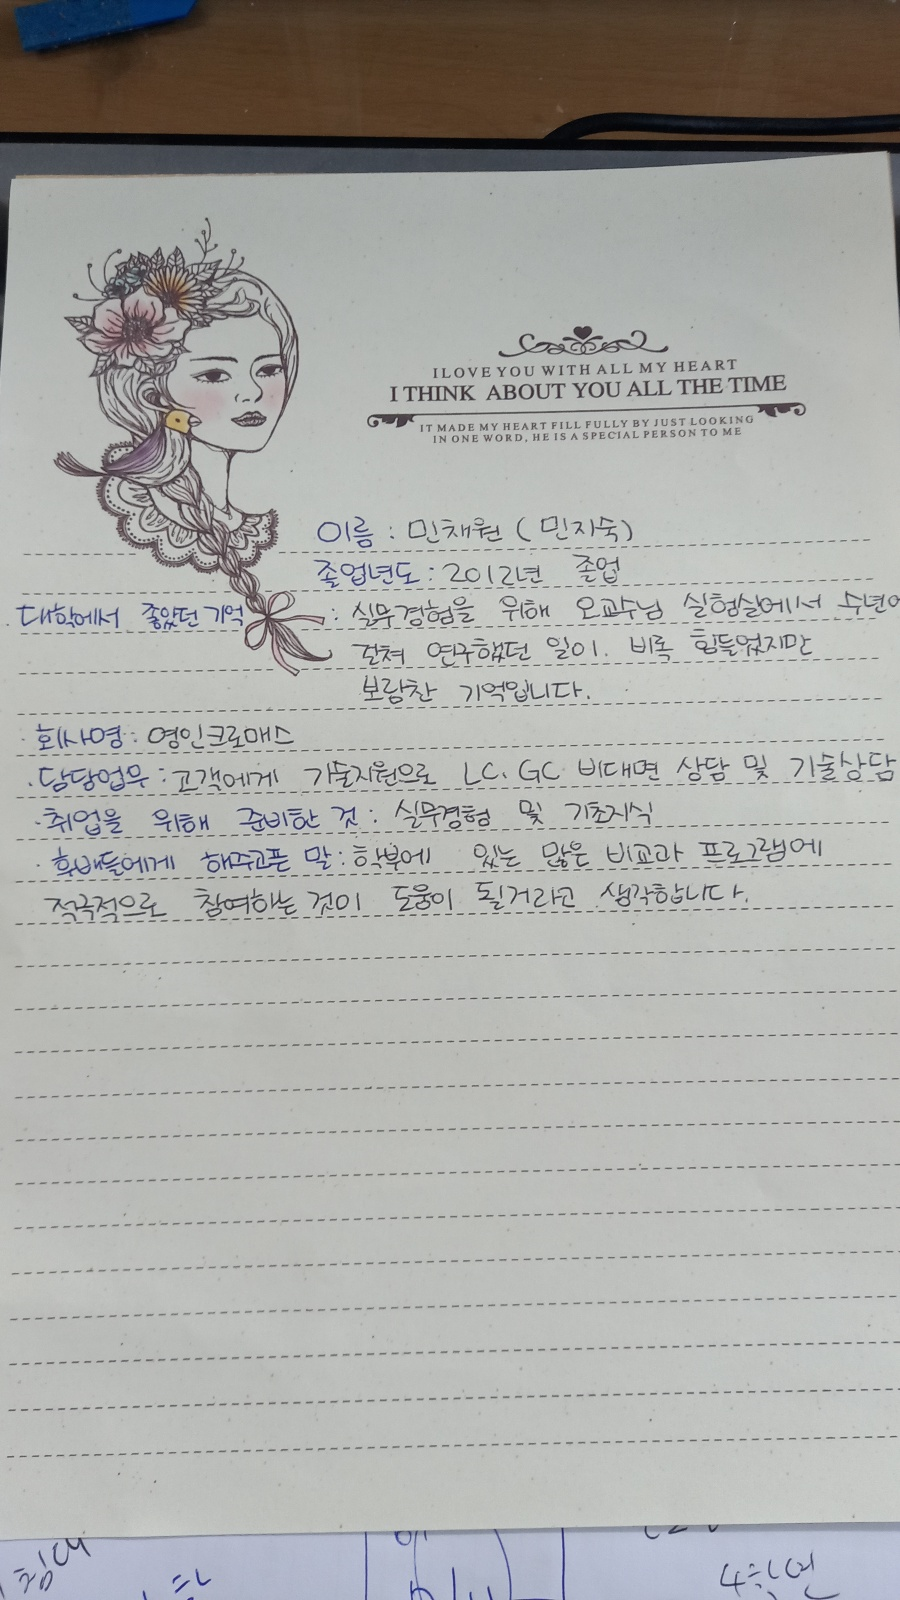 I LOVE YOU WITH ALL MY HEART
I THINK ABOUT YOU ALL THE TIME
IT MADE MY HEART FILL FULLY BY JUST LOOKING
IN ONE WORD, HE IS A SPECIAL PERSON TO ME
이름 : 민채원 ( 민지숙)
졸업년도 : 2012년 졸업
대학에서 좋았던 기억 : 실무경험을 위해 오교수님 실험실에서 수년에
걸쳐 연구했던 일이. 비록 힘들었지만
보람찬 기억입니다.
· 회사명 : 영인크로매스
· 담당업무 : 고객에게 기술지원으로 LC, GC 비대면 상담 및 기술상담
· 취업을 위해 준비한 것 : 실무경험 및 기초지식
· 후배들에게 해주고픈 말 : 학부에 있는 많은 비교과 프로그램에
적극적으로 참여하는 것이 도움이 될거라고 생각합니다.
4학년